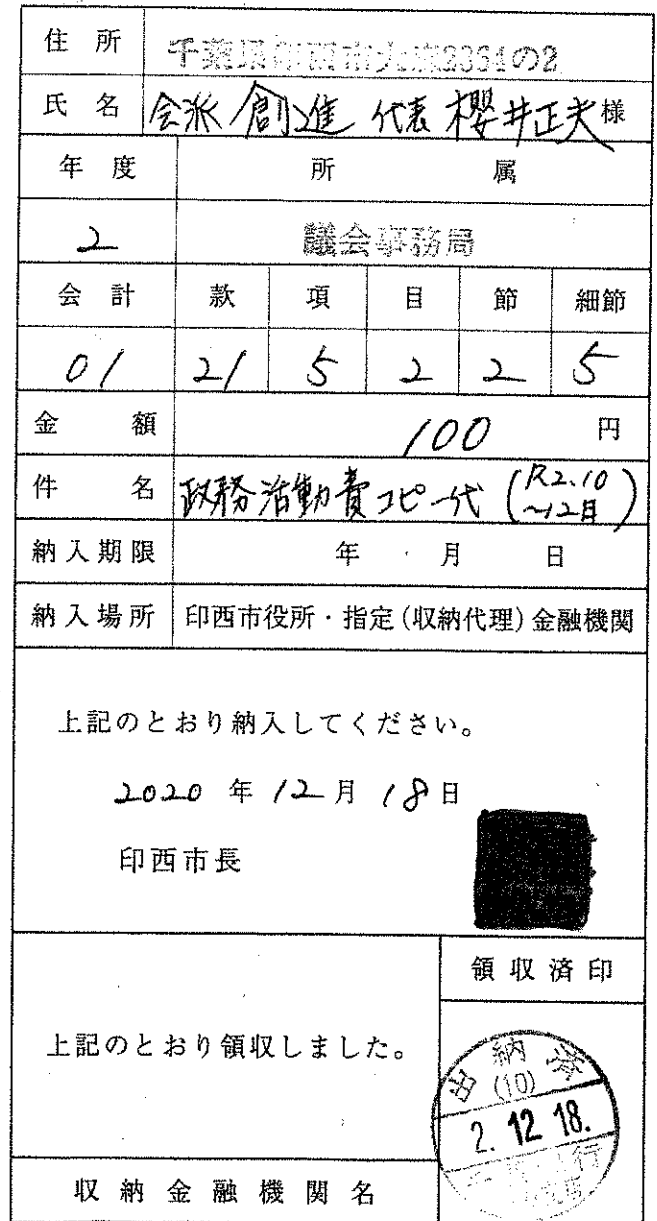 住所 千葉県印西市大森2364の2
氏名 会派 創進 代表 櫻井正夫 様
年度 所属
2 議会事務局
会計 款 項 目 節 細節
01 21 5 2 2 5
金額 100 円
件名 政務活動費コピー代 (R2.10
~12月)
納入期限 年 月 日
納入場所 印西市役所・指定(収納代理)金融機関
上記のとおり納入してください。
2020 年 12 月 18 日
印西市長
領収済印
上記のとおり領収しました。
出納
(10)
2. 12. 18.
収納金融機関名